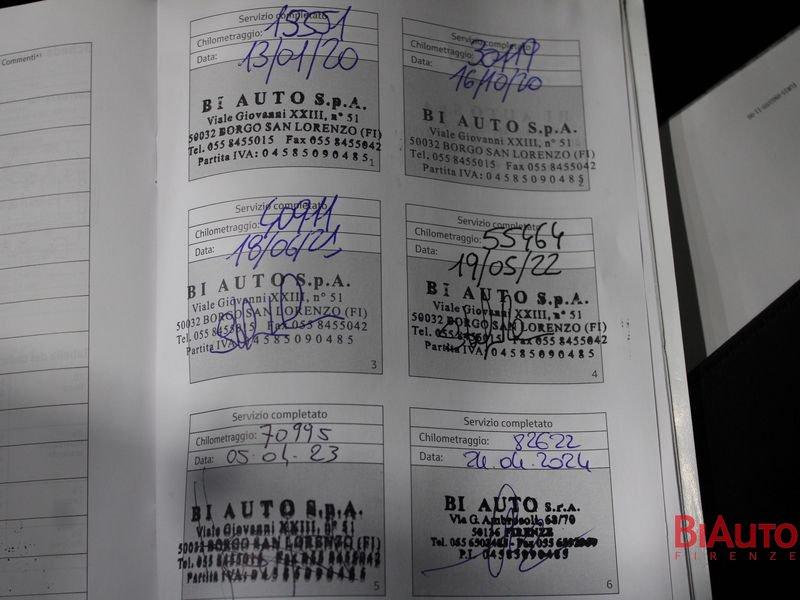 Commenti*⁾
Servizio completato
Chilometraggio: 15551
Data: 13/01/20
BI AUTO S.p.A.
Viale Giovanni XXIII, n° 51
50032 BORGO SAN LORENZO (FI)
Tel. 055 8455015 Fax 055 8455042
Partita IVA: 04585090485
1
Servizio completato
Chilometraggio: 30119
Data: 16/10/20
BI AUTO S.p.A.
Viale Giovanni XXIII, n° 51
50032 BORGO SAN LORENZO (FI)
Tel. 055 8455015 Fax 055 8455042
Partita IVA: 04585090485
2
Servizio completato
Chilometraggio: 40911
Data: 18/06/21
BI AUTO S.p.A.
Viale Giovanni XXIII, n° 51
50032 BORGO SAN LORENZO (FI)
Tel. 055 Fax 055 8455042
Partita IVA: 04585090485
3
Servizio completato
Chilometraggio: 55464
Data: 19/05/22
BI AUTO S.p.A.
Viale Giovanni XXIII, n° 51
50032 BORGO SAN LORENZO (FI)
Tel. Fax 055 8455042
Partita IVA: 04585090485
4
Servizio completato
Chilometraggio: 70995
Data: 05.04.23
BI AUTO S.p.A.
Viale Giovanni XXIII, n° 51
50032 BORGO SAN LORENZO (FI)
Tel. 055 8455015 Fax 055 8455042
Partita IVA: 04585090485
5
Servizio completato
Chilometraggio: 82622
Data: 24.04.2024
BI AUTO S.r.l.
Via G. Ambrosoli, 68/70
FIRENZE
Tel. 055 Fax 055
P.I. 04585090485
6
BIAUTO
FIRENZE